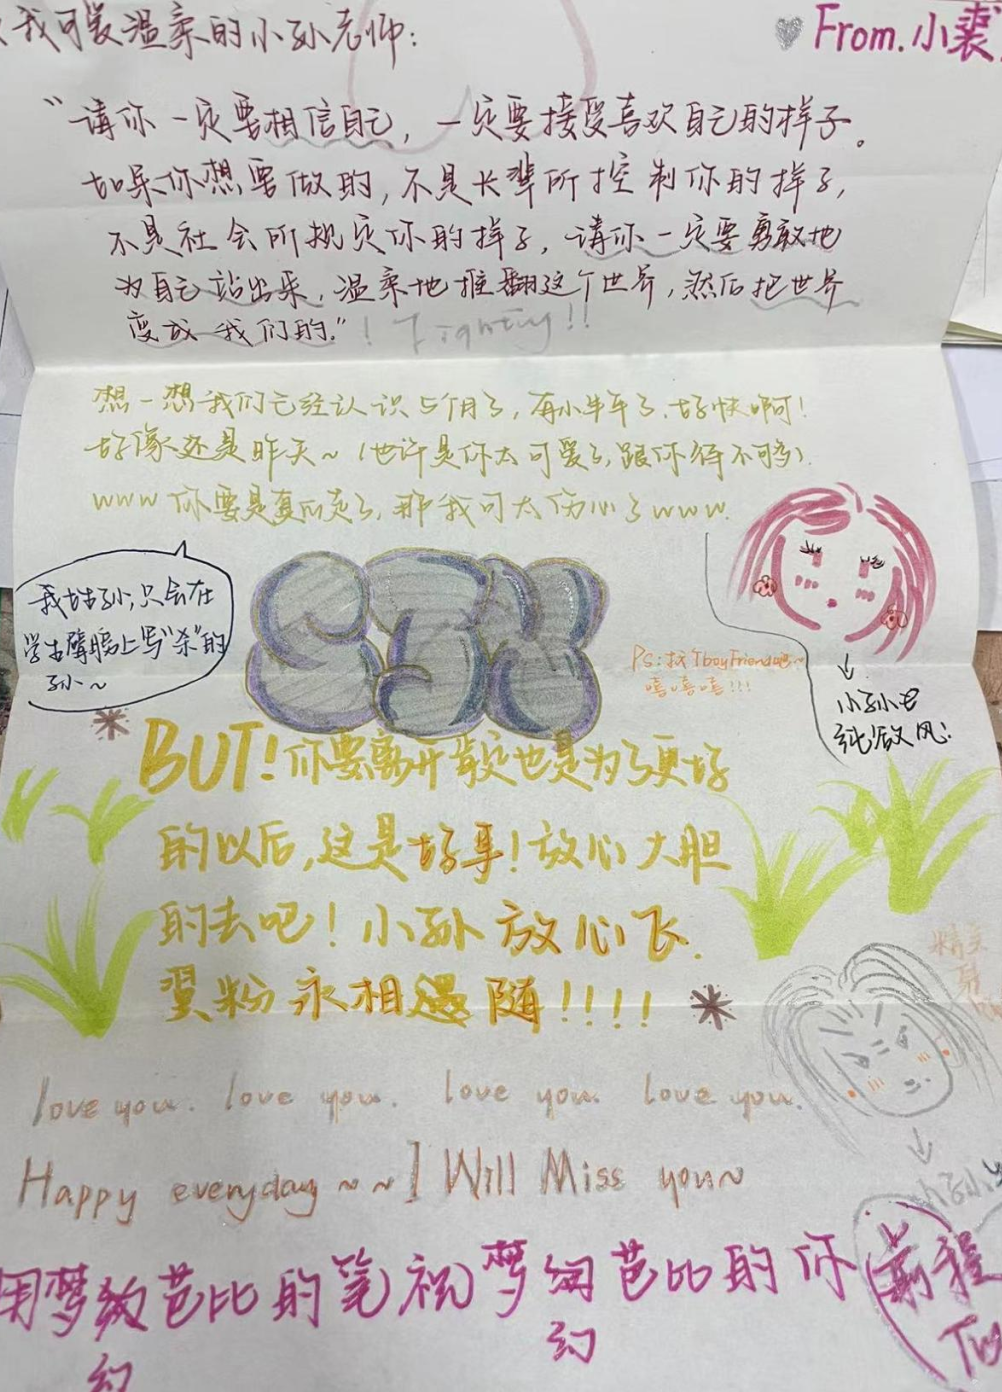 我可爱温柔的小孙老师：
From.小裴
“请你一定要相信自己，一定要接受喜欢自己的样子。
如果你想要做的，不是长辈所控制你的样子，
不是社会所规定你的样子，请你一定要勇敢地
为自己站出来，温柔地推翻这个世界，然后把世界
变成我们的。”！Fighting!!
想一想我们已经认识5个月了，有小半年了，好快啊！
好像还是昨天～（也许是你太可爱了，跟你待不够）
www你要是真的走了，那我可太伤心了www.
我姓孙，只会在
学生臂膀上写“杀”的
孙～
SUN
Ps:找个boyFriend吧～
嘻嘻嘻!!!
↓
小孙老
BUT!你要离开肯定也是为了更好
的以后，这是好事！放心大胆
的去吧！小孙放心飞.
翼粉永相随!!!!
精美
↓
小孙
love you. love you. love you. love you.
Happy everyday～～I Will Miss you～
用梦芭比的笔祝梦芭比的你前程
幻
幻